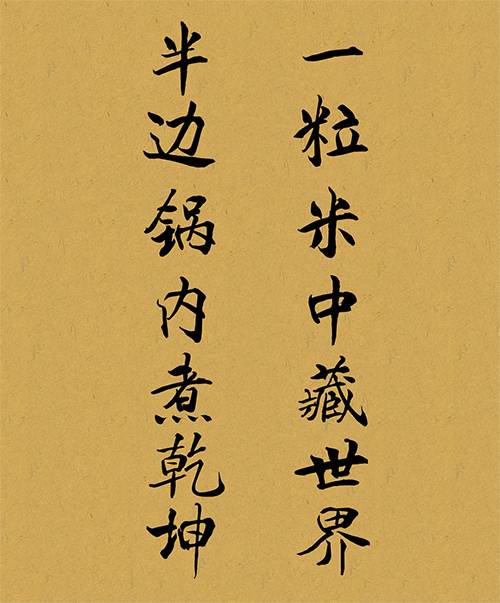 一粒米中藏世界
半边锅内煮乾坤